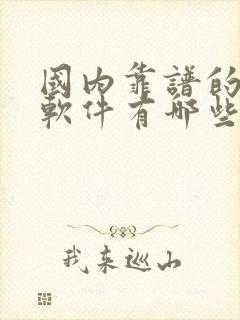 國内靠譜的
軟件有哪些
我来巡山